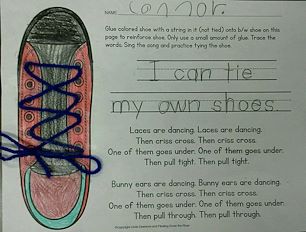 NAME Connor
Glue colored shoe with a string in it (not tied) onto b/w shoe on this
page to reinforce shoe. Only use a small amount of glue. Trace the
words. Sing the song and practice tying the shoe.
I can tie
my own shoes
Laces are dancing. Laces are dancing.
Then criss cross. Then criss cross.
One of them goes under. One of them goes under.
Then pull tight. Then pull tight.
Bunny ears are dancing. Bunny ears are dancing.
Then criss cross. Then criss cross.
One of them goes under. One of them goes under.
Then pull through. Then pull through.